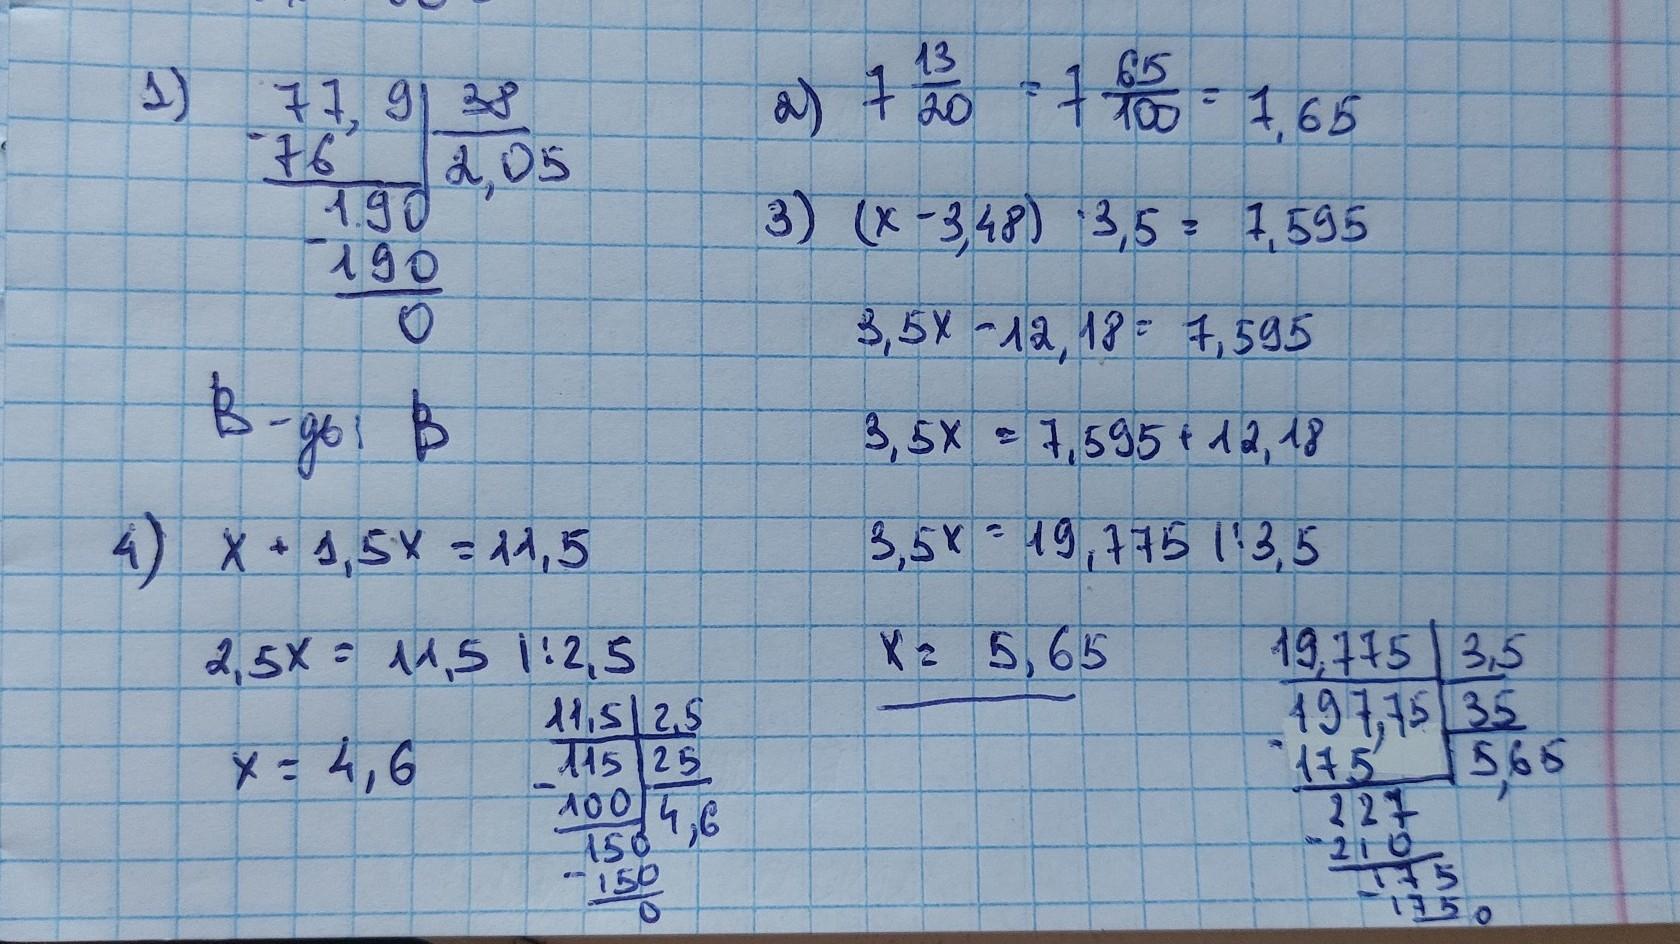 1) 77,9 | 38
-76 | 2,05
190
-190
0
В-дь: В
2) 7 13/20 = 7 65/100 = 7,65
3) (x - 3,48) · 3,5 = 7,595
3,5x - 12,18 = 7,595
3,5x = 7,595 + 12,18
3,5x = 19,775 |:3,5
x = 5,65
19,775 | 3,5
197,75 | 35
-175 | 5,65
227
-210
175
-175
0
4) x + 1,5x = 11,5
2,5x = 11,5 |:2,5
x = 4,6
11,5 | 2,5
115 | 25
-100 | 4,6
150
-150
0